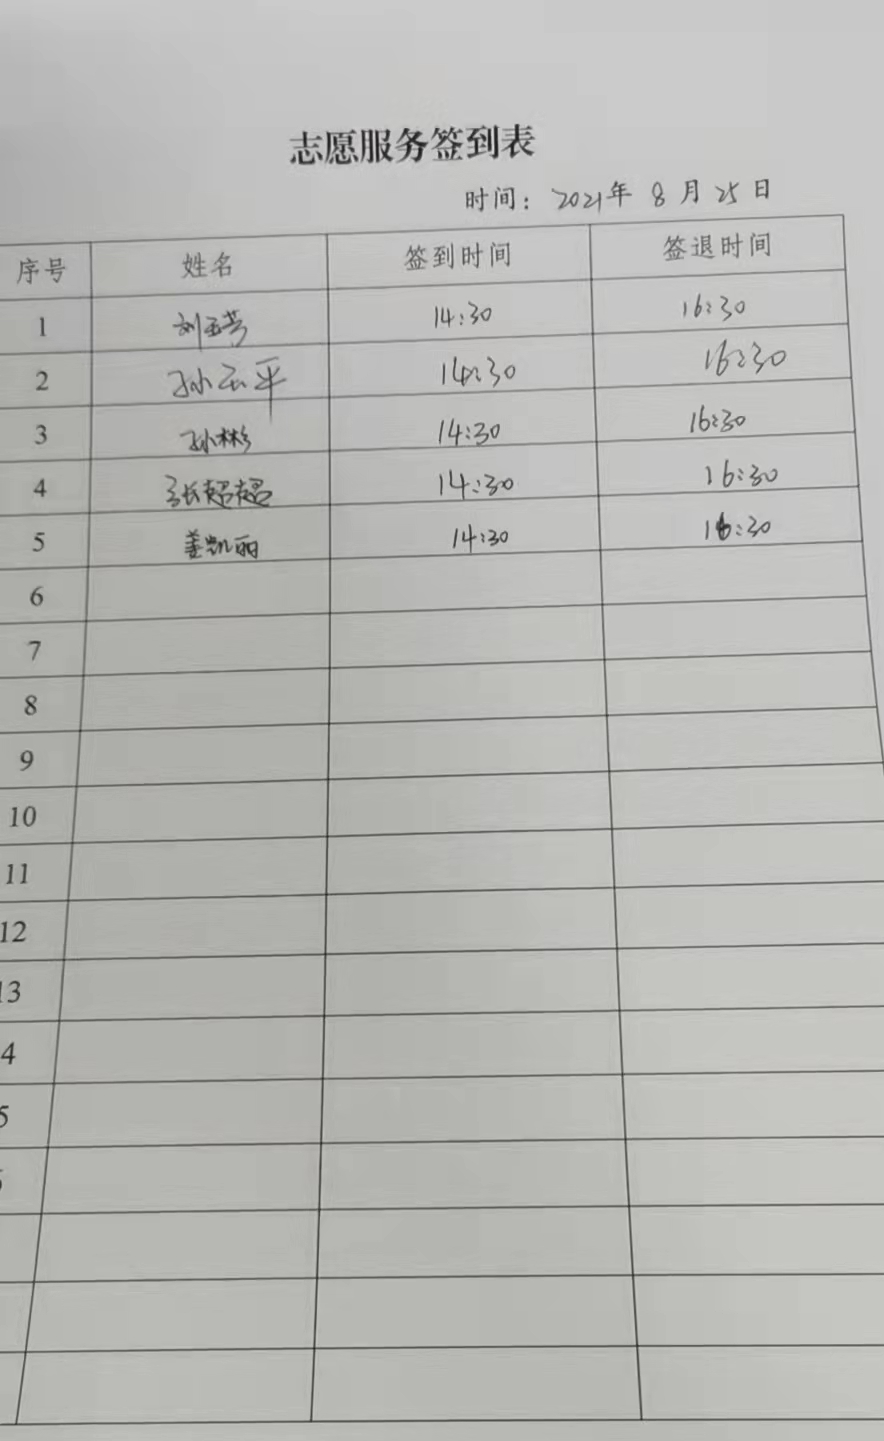 志愿服务签到表
时间：2021年 8月25日
序号 姓名 签到时间 签退时间
1 刘玉芳 14:30 16:30
2 孙云平 14:30 16:30
3 孙彬 14:30 16:30
4 张超超 14:30 16:30
5 姜凯丽 14:30 16:30
6
7
8
9
10
11
12
13
4
5